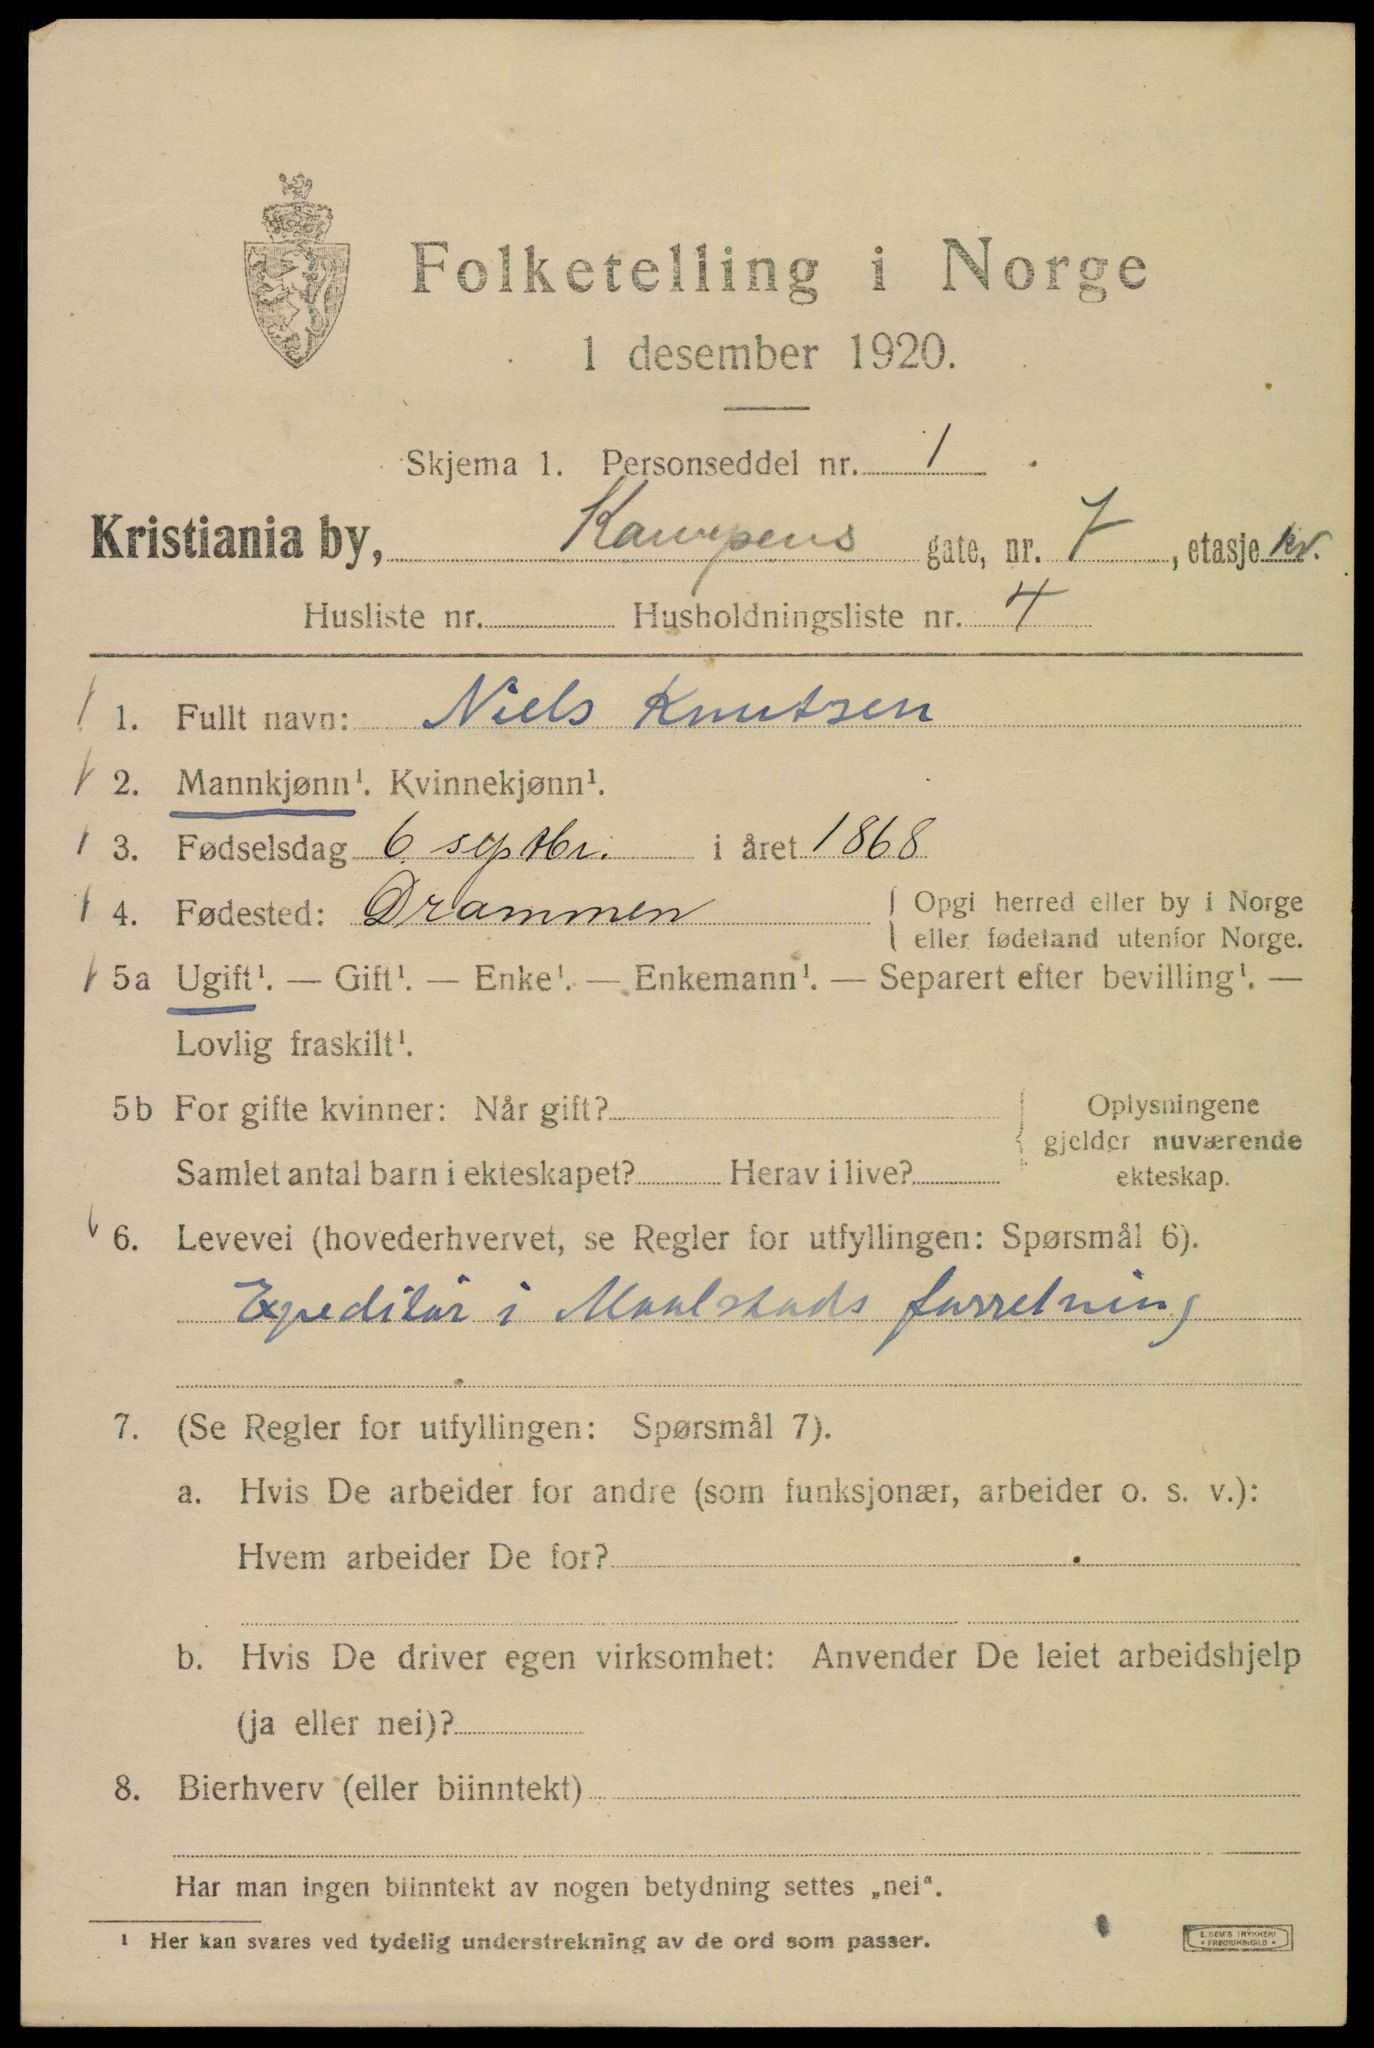 Folketelling i Norge
1 desember 1920.
Skjema 1. Personseddel nr. 1
Kristiania by, Kampens gate, nr. 7, etasje kv.
Husliste nr. Husholdningsliste nr. 4
1. Fullt navn: Niels Knutsen
2. Mannkjønn¹. Kvinnekjønn¹.
3. Fødselsdag 6 septbr. i året 1868
4. Fødested: Drammen Opgi herred eller by i Norge
eller fødeland utenfor Norge.
5a Ugift¹. — Gift¹. — Enke¹. — Enkemann¹. — Separert efter bevilling¹. —
Lovlig fraskilt¹.
5b For gifte kvinner: Når gift? Oplysningene
gjelder nuværende
Samlet antal barn i ekteskapet? Herav i live? ekteskap.
6. Levevei (hovederhvervet, se Regler for utfyllingen: Spørsmål 6).
Expeditør i Maalstads forretning
7. (Se Regler for utfyllingen: Spørsmål 7).
a. Hvis De arbeider for andre (som funksjonær, arbeider o. s. v.):
Hvem arbeider De for?
b. Hvis De driver egen virksomhet: Anvender De leiet arbeidshjelp
(ja eller nei)?
8. Bierhverv (eller biinntekt)
Har man ingen biinntekt av nogen betydning settes „nei".
¹ Her kan svares ved tydelig understrekning av de ord som passer.
E. SEM'S TRYKKERI
• FREDRIKSHALD •